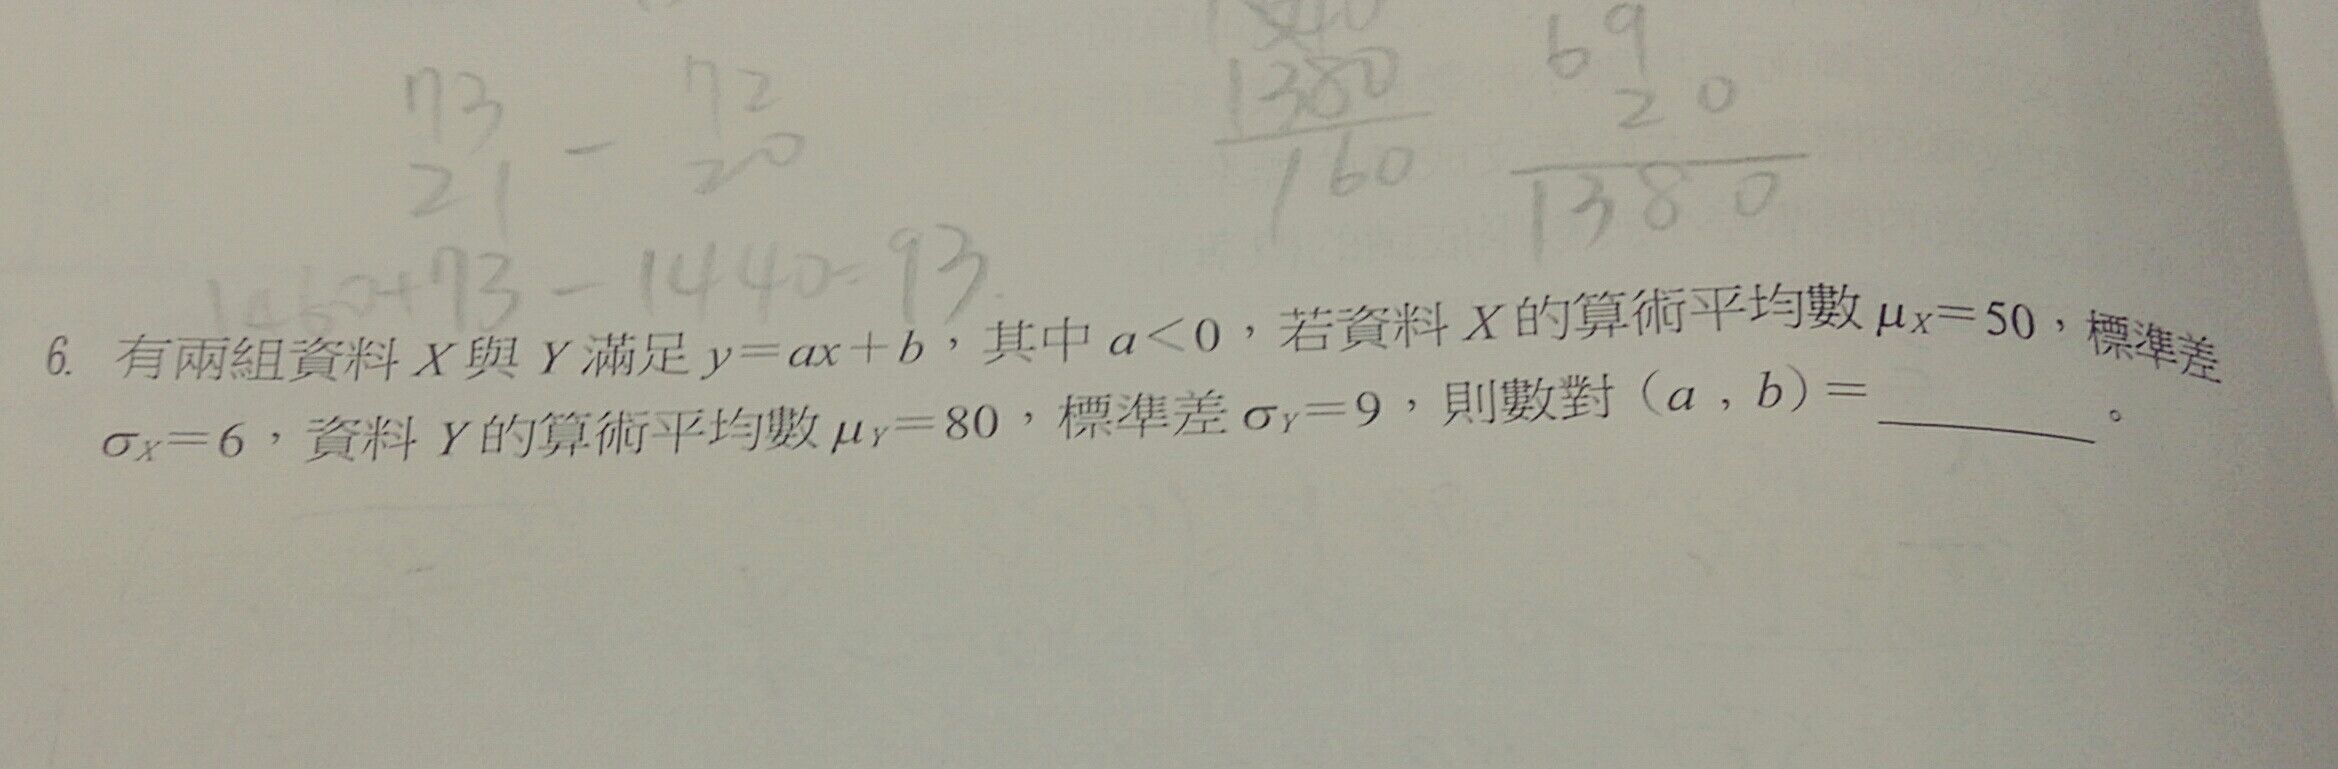 73 - 72
21 20
1380 69
160 20
1380
1460+73-1440-93
6. 有兩組資料 X 與 Y 滿足 y=ax+b，其中 a<0，若資料 X 的算術平均數 μX=50，標準差
σX=6，資料 Y 的算術平均數 μY=80，標準差 σY=9，則數對（a , b）=＿＿＿＿。